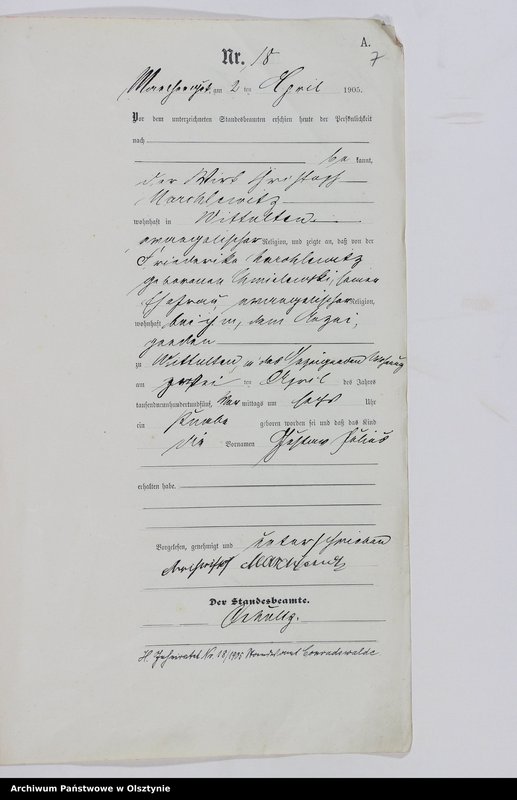 A.
7
Nr. 18
am 2 ten April 1905.
Vor dem unterzeichneten Standesbeamten erschien heute der Persönlichkeit
nach
be kannt,
der Wirt Christoph
Marchlewitz
wohnhaft in Wittulten,
evangelischer Religion, und zeigte an, daß von der
Friederike Marchlewitz
geborenen Chmielewski, seiner
Ehefrau, evangelischer Religion,
wohnhaft bei ihm, dem Anzei,
genden
zu Wittulten, in des Anzeigenden Wohnung
am zwei ten April des Jahres
tausendneunhundertundfünf, Vor mittags um sechs Uhr
ein Knabe geboren worden sei und daß das Kind
die Vornamen Gustav Julius
erhalten habe.
Vorgelesen, genehmigt und unterschrieben
Der Standesbeamte.
Schultz.
Nr. 18/1935 Standesamt Conradswalde
Archiwum Państwowe w Olsztynie